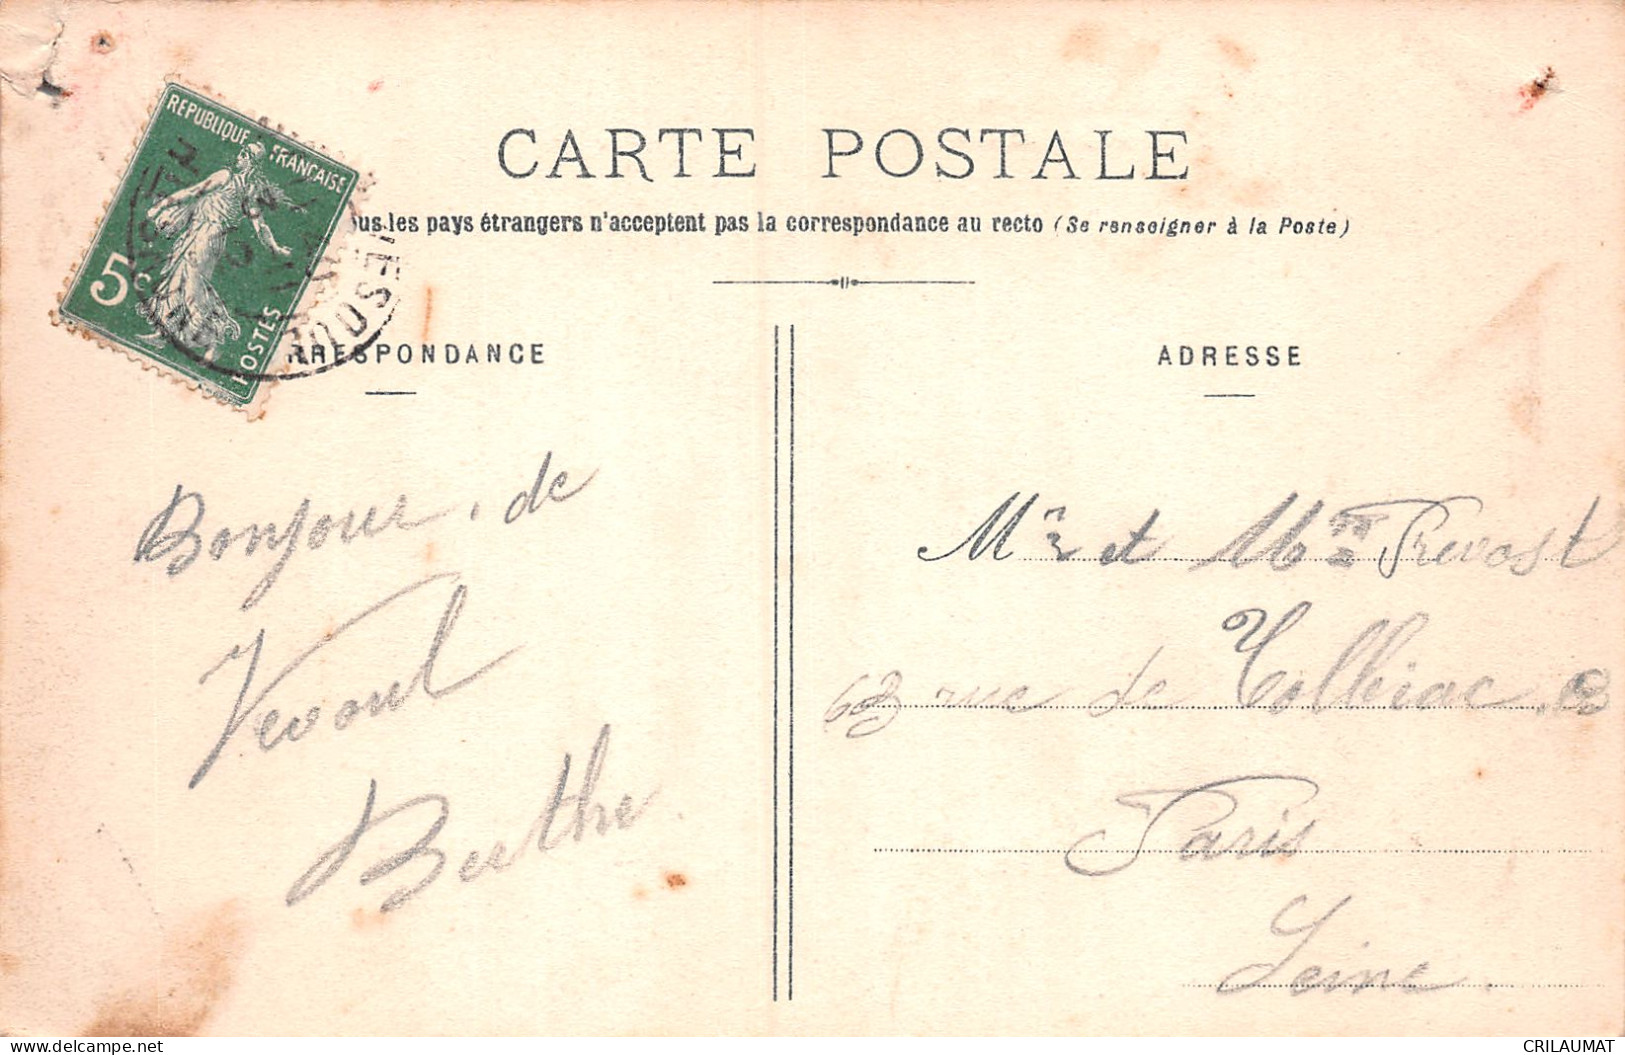 CARTE POSTALE
ous les pays étrangers n'acceptent pas la correspondance au recto (Se renseigner à la Poste)
REPUBLIQUE FRANCAISE
5c
POSTES
RRESPONDANCE
ADRESSE
Bonjour. de
Vesoul
Berthe.
Mr et Mme Prevost
63 rue de Tolbiac.
Paris
Seine.
delcampe.net
CRILAUMAT